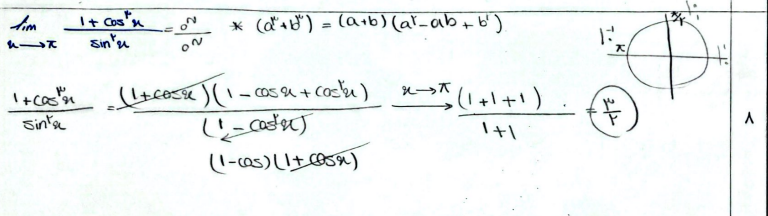 lim x→π (1 + cos³x)/(sin²x) = ۰~/۰~ * (a³+b³) = (a+b)(a² - ab + b²)
(1 + cos³x)/(sin²x) = (1+cosx)(1 - cosx + cos²x)/(1 - cos²x) x→π (1+1+1)/(1+1) = ۳/۲
(1-cos)(1+cosx)
π
π/۲
۸